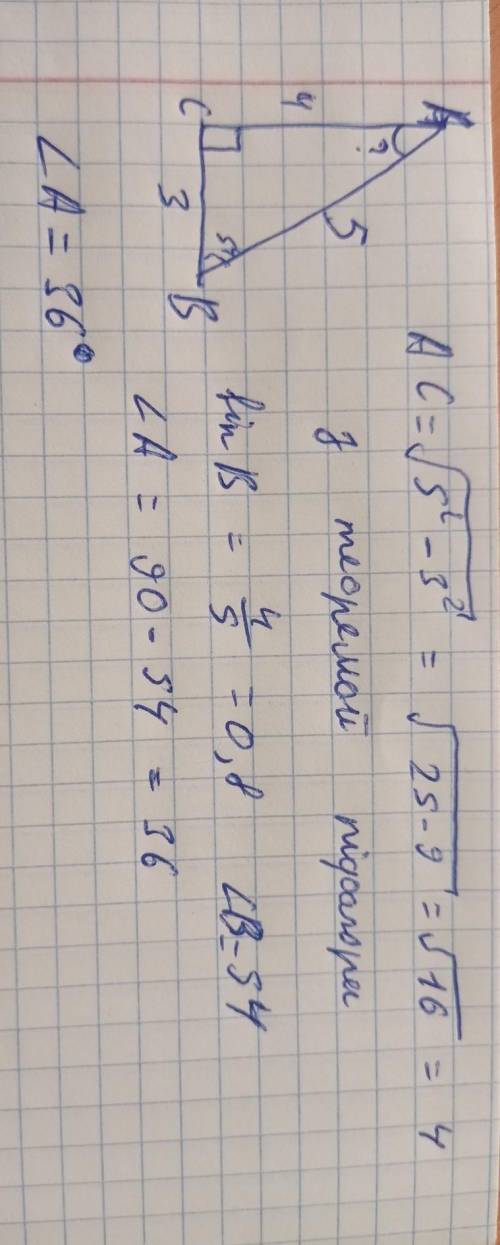 A
4
?
5
C
3
54
B
AC = √5² - 3² = √25 - 9 = √16 = 4
З теоремой підагора
sin B = 4/5 = 0,8 ∠B = 54
∠A = 90 - 54 = 36
∠A = 36°